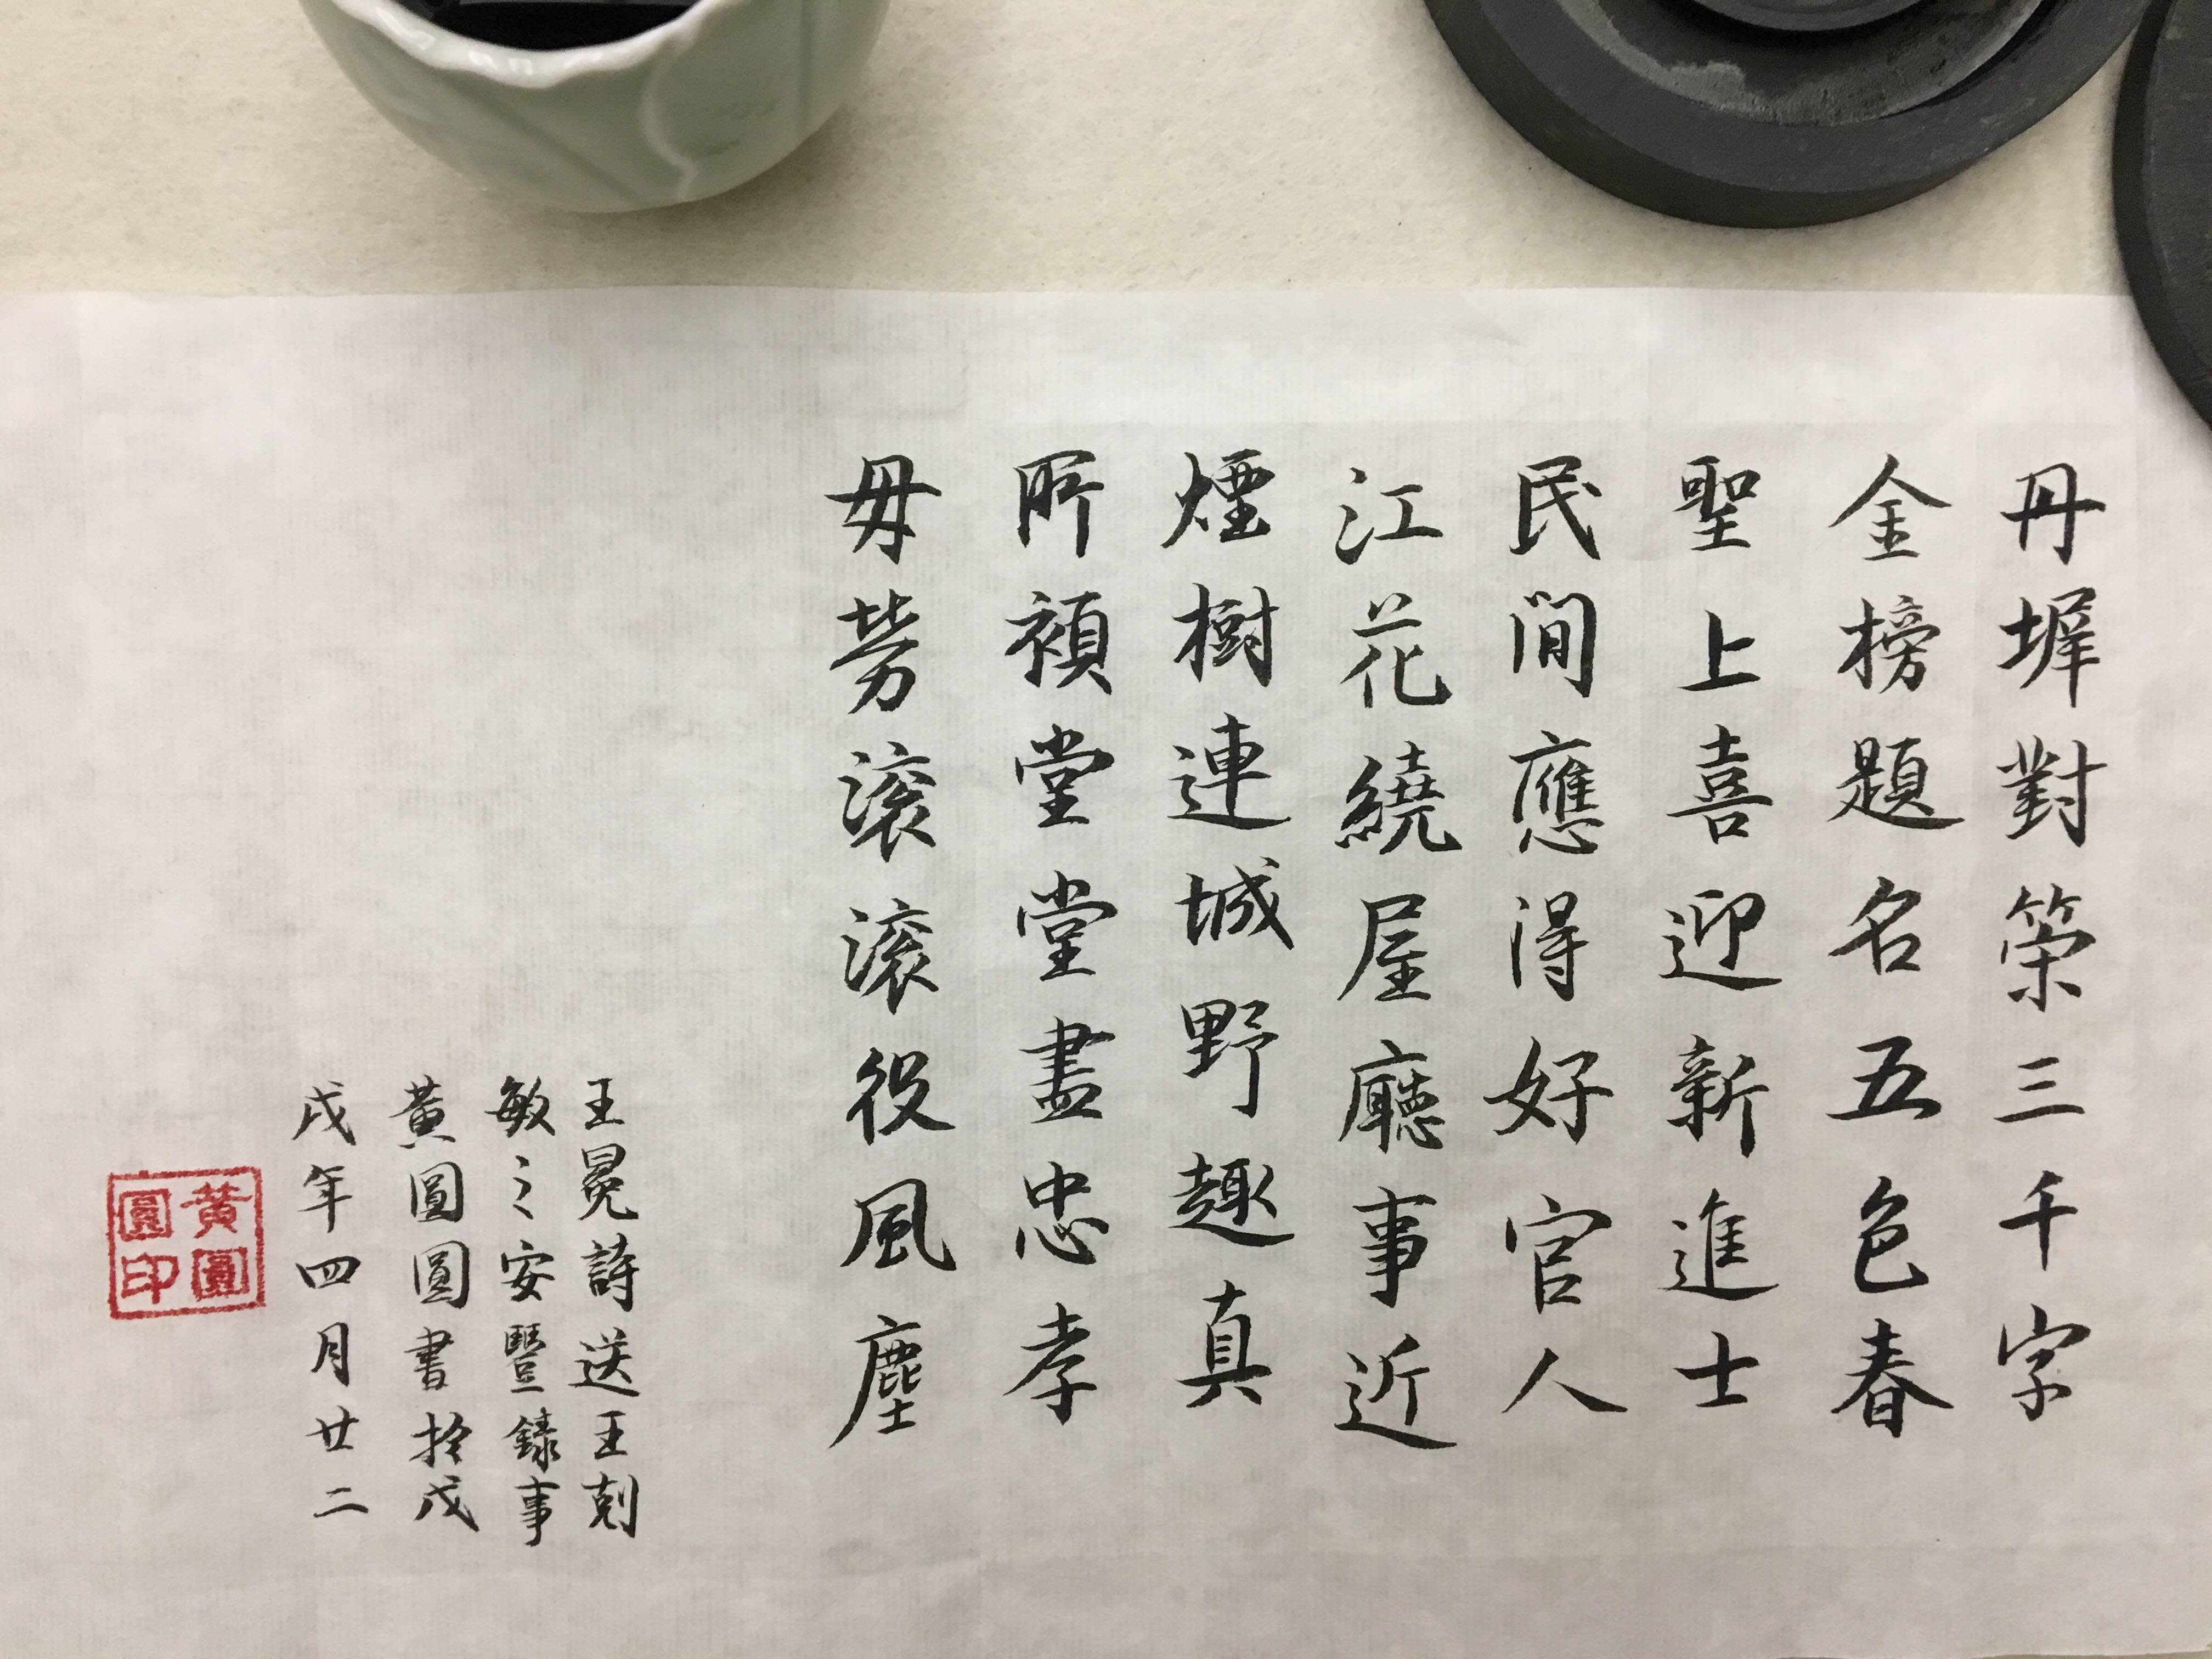 丹墀對策三千字
金榜題名五色春
聖上喜迎新進士
民間應得好官人
江花繞屋廳事近
煙樹連城野趣真
所須堂堂盡忠孝
毋勞滚滚役風塵
王冕詩送王剋
敏之安豐錄事
黃圓圓書於戊
戌年四月廿二
黃圓
圓印